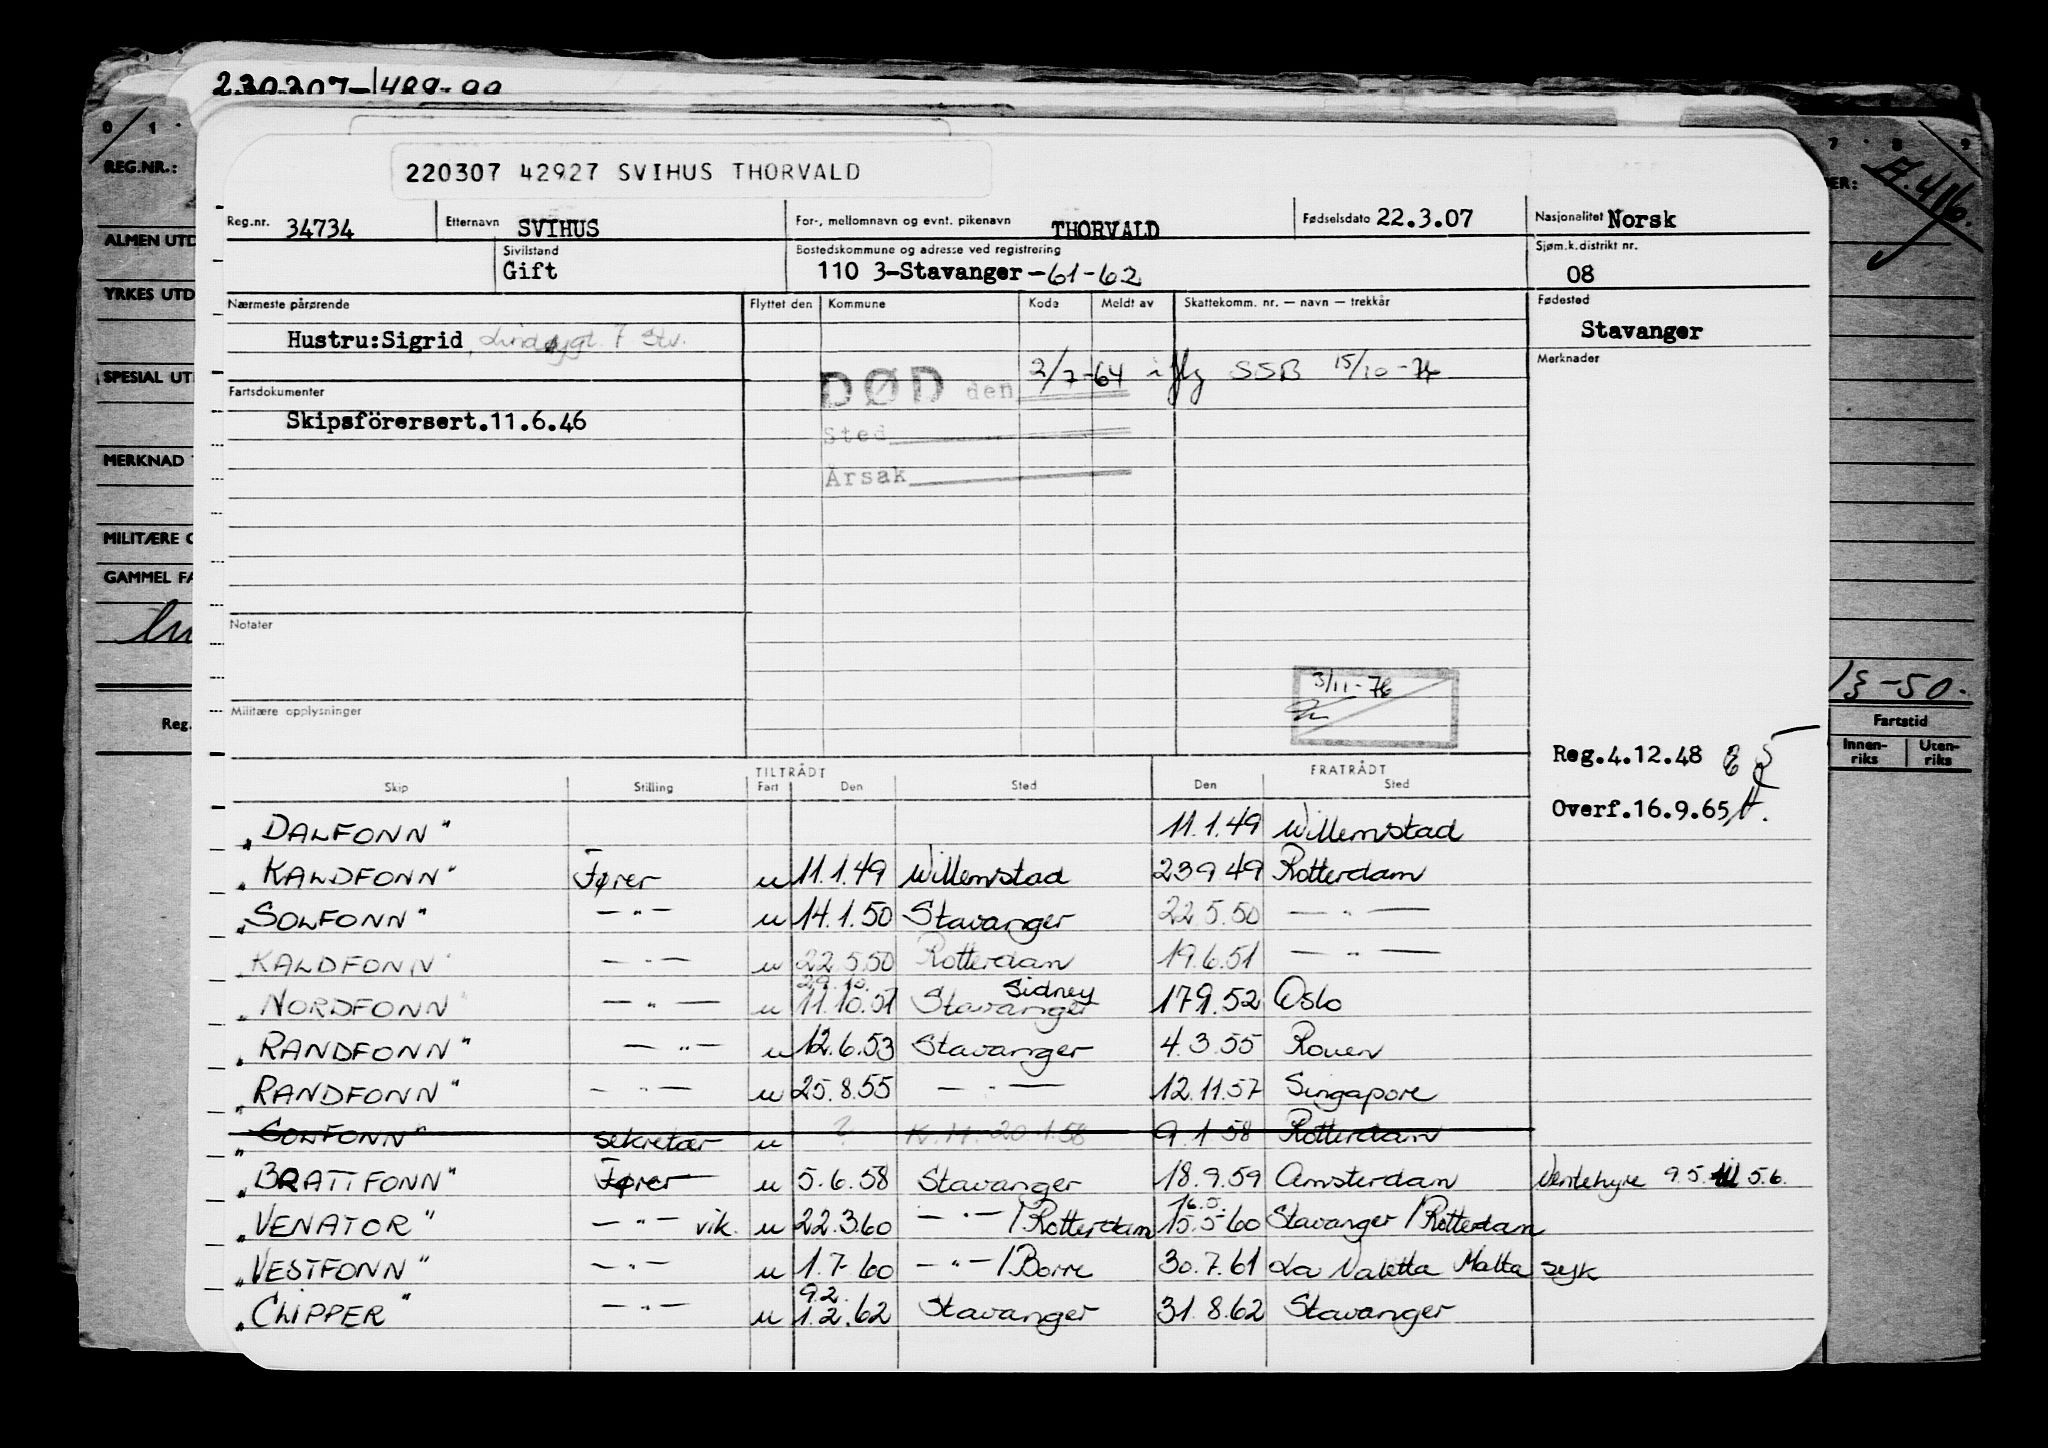 220307 42927 SVIHUS THORVALD
Reg.nr. 34734 Etternavn SVIHUS For-, mellomnavn og evnt. pikenavn THORVALD Fødselsdato 22.3.07 Nasjonalitet Norsk
Sivilstand Gift Bostedskommune og adresse ved registrering 110 3-Stavanger -61-62 Sjøm.k.distrikt nr. 08
Nærmeste pårørende Flyttet den Kommune Kode Meldt av Skattekomm. nr. — navn — trekkår Fødested
Hustru:Sigrid Stavanger
Merknader
DØD den 2/7-64 iflg SSB 15/10-74
Fartsdokumenter
Skipsförersert.11.6.46
Sted
Årsak
Notater
3/11-76
Militære opplysninger
Reg.4.12.48
Overf.16.9.65
TILTRÅDT FRATRÅDT
Skip Stilling Fart Den Sted Den Sted
„DALFONN" 11.1.49 Willemstad
„KALDFONN" Fører u 11.1.49 Willemstad 23.9.49 Rotterdam
„SOLFONN" — " — u 14.1.50 Stavanger 22.5.50 — " —
„KALDFONN" — " — u 22.5.50 Rotterdam 19.6.51 — " —
29.10. Sidney
„NORDFONN" — " — u 11.10.51 Stavanger 17.9.52 Oslo
„RANDFONN" — " — u 12.6.53 Stavanger 4.3.55 Rouen
„RANDFONN" — " — u 25.8.55 — " — 12.11.57 Singapore
„SOLFONN" sekretær u ? K.H. 20.1.58 9.1.58 Rotterdam
„BRATTFONN" Fører u 5.6.58 Stavanger 18.9.59 Amsterdam Ventehyre 9.5. til 5.6.
16.5.
„VENATOR" — " — vik. u 22.3.60 — " — / Rotterdam 15.5.60 Stavanger / Rotterdam
„VESTFONN" — " — u 1.7.60 — " — / Borre 30.7.61 La Valetta Malta syk
9.2.
„CLIPPER" — " — u 1.2.62 Stavanger 31.8.62 Stavanger
0 1
REG.NR.:
ALMEN UTD
YRKES UTD
SPESIAL UT
MERKNAD
MILITÆRE O
GAMMEL FA
Reg.
7 8 9
ER:
A.416.
-50.
Fartstid
Innen-riks Uten-riks